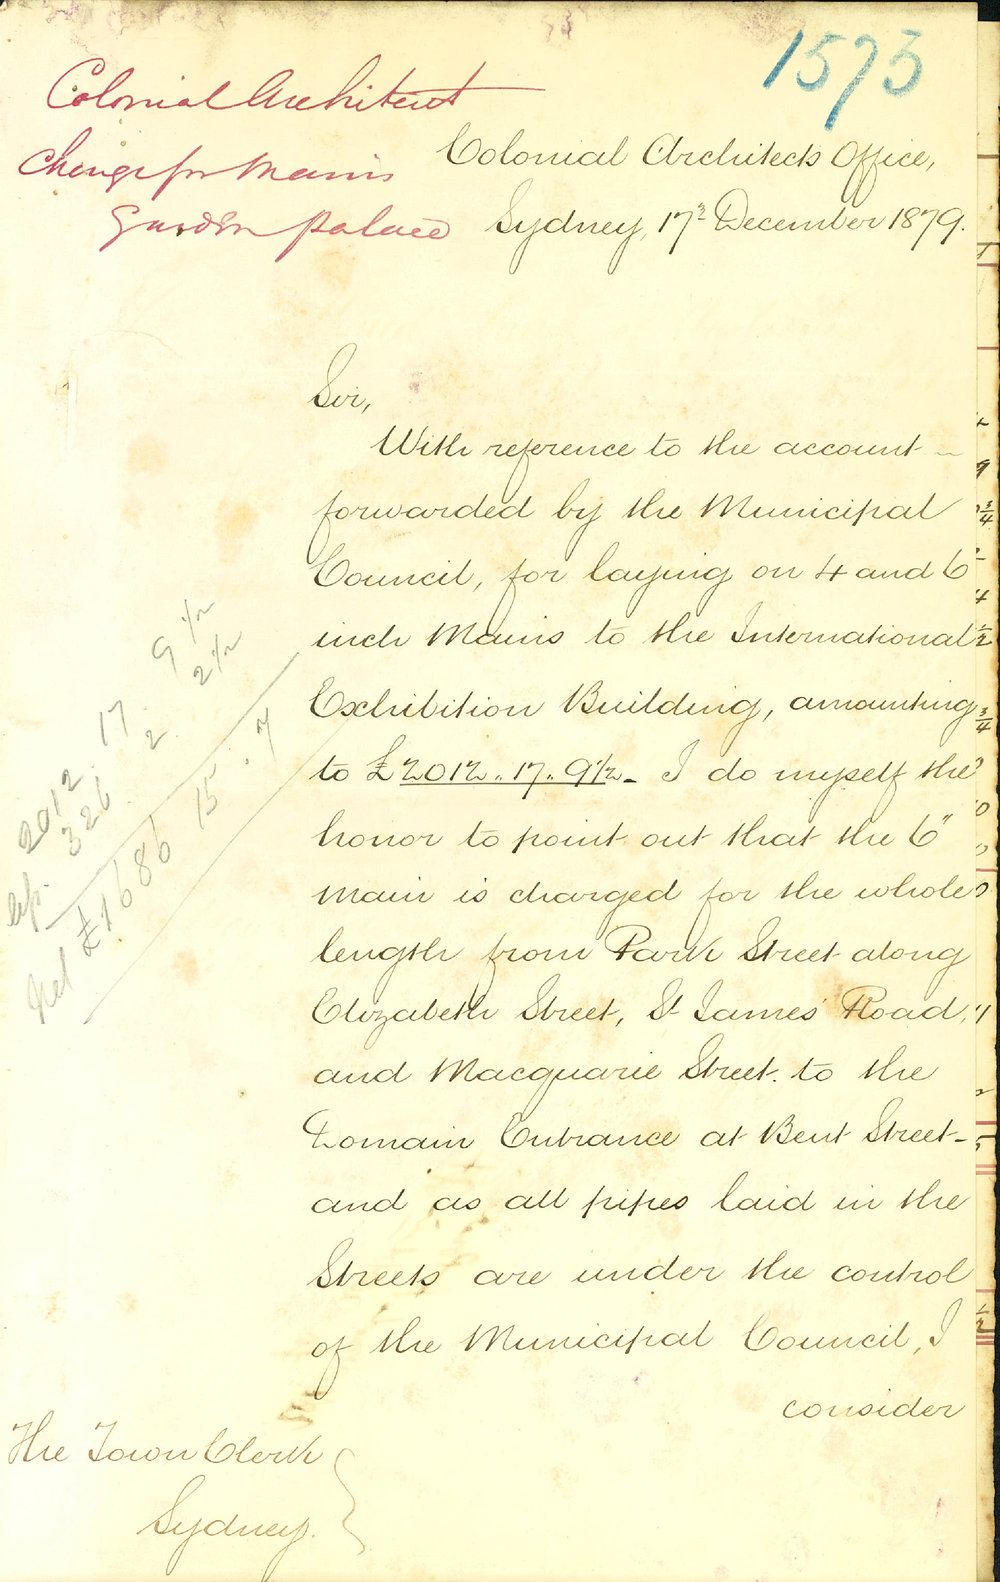 1573
Colonial Architect
Charge for Mains
Garden Palace
Colonial Architects Office,
Sydney, 17th December 1879.
Sir,
With reference to the account
forwarded by the Municipal
Council, for laying on 4 and 6
inch Mains to the International
Exhibition Building, amounting
to £2012..17..9½ - I do myself the
honor to point out that the 6"
main is charged for the whole
length from Park Street along
Elizabeth Street, St James' Road,
and Macquarie Street. to the
Domain Entrance at Bent Street-
and as all pipes laid in the
Streets are under the control
of the Municipal Council, I
consider
The Town Clerk
Sydney.
2012 . 17 . 9½
326 . 2 . 2½
£1686 . 15 . 7